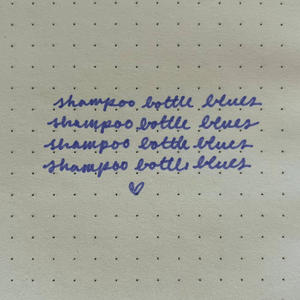 shampoo bottle blues
shampoo bottle blues
shampoo bottle blues
shampoo bottle blues